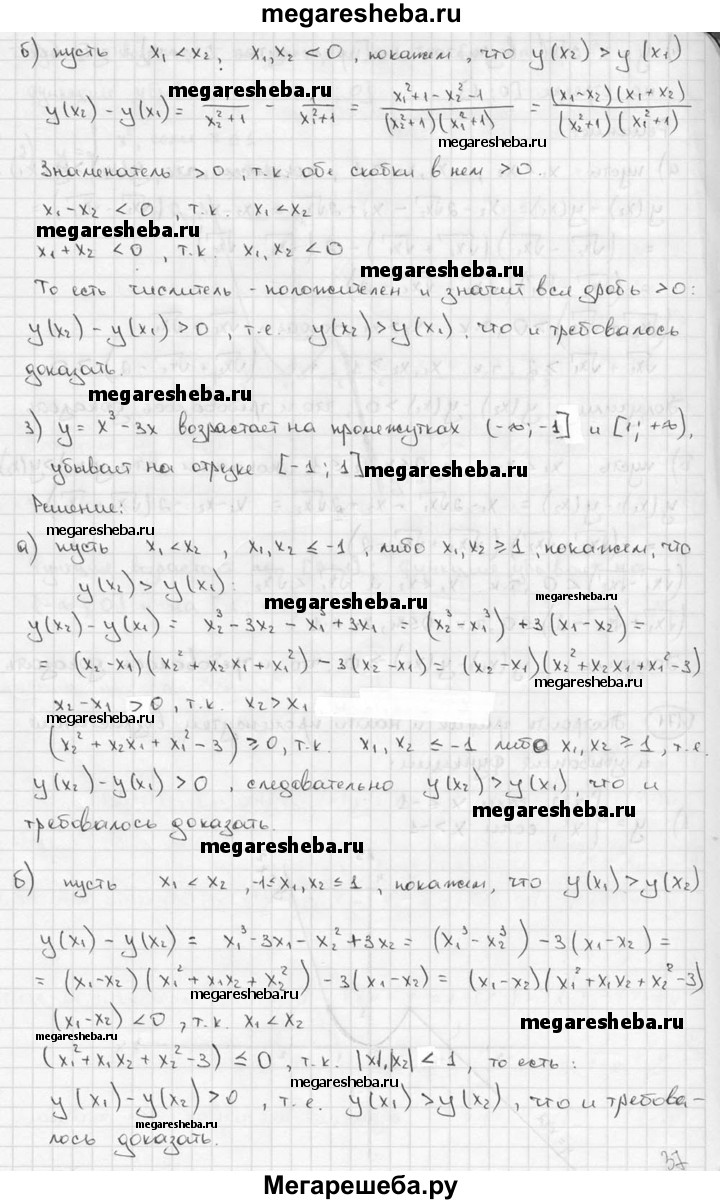 megaresheba.ru
б) пусть x₁ < x₂, x₁,x₂ < 0, покажем, что y(x₂) > y(x₁)
megaresheba.ru
y(x₂) - y(x₁) = 1/(x₂²+1) - 1/(x₁²+1) = (x₁²+1-x₂²-1)/((x₂²+1)(x₁²+1)) = ((x₁-x₂)(x₁+x₂))/((x₂²+1)(x₁²+1))
megaresheba.ru
Знаменатель > 0, т.к. обе скобки в нем > 0.
x₁-x₂ < 0, т.к. x₁ < x₂
megaresheba.ru
x₁+x₂ < 0, т.к. x₁,x₂ < 0
megaresheba.ru
То есть числитель - положителен и значит вся дробь > 0:
y(x₂) - y(x₁) > 0, т.е. y(x₂) > y(x₁), что и требовалось
доказать.
megaresheba.ru
3) y = x³ - 3x возрастает на промежутках (-∞; -1] и [1; +∞),
убывает на отрезке [-1; 1]
megaresheba.ru
Решение:
megaresheba.ru
а) пусть x₁ < x₂, x₁,x₂ ≤ -1, либо x₁,x₂ ≥ 1, покажем, что
y(x₂) > y(x₁):
megaresheba.ru
megaresheba.ru
y(x₂) - y(x₁) = x₂³ - 3x₂ - x₁³ + 3x₁ = (x₂³ - x₁³) + 3(x₁ - x₂) =
= (x₂-x₁)(x₂² + x₂x₁ + x₁²) - 3(x₂-x₁) = (x₂-x₁)(x₂²+x₂x₁+x₁²-3)
megaresheba.ru
x₂-x₁ > 0, т.к. x₂ > x₁
(x₂² + x₂x₁ + x₁² - 3) ≥ 0, т.к. x₁,x₂ ≤ -1 либо x₁,x₂ ≥ 1, т.е.
y(x₂) - y(x₁) > 0, следовательно y(x₂) > y(x₁), что и
megaresheba.ru
требовалось доказать.
megaresheba.ru
б) пусть x₁ < x₂, -1 ≤ x₁,x₂ ≤ 1, покажем, что y(x₁) > y(x₂)
y(x₁) - y(x₂) = x₁³ - 3x₁ - x₂³ + 3x₂ = (x₁³ - x₂³) - 3(x₁-x₂) =
= (x₁-x₂)(x₁² + x₁x₂ + x₂²) - 3(x₁-x₂) = (x₁-x₂)(x₁²+x₁x₂+x₂²-3)
megaresheba.ru
(x₁-x₂) < 0, т.к. x₁ < x₂
megaresheba.ru
megaresheba.ru
(x₁²+x₁x₂+x₂²-3) ≤ 0, т.к. |x₁|,|x₂| < 1, то есть:
megaresheba.ru
y(x₁) - y(x₂) > 0, т.е. y(x₁) > y(x₂), что и требова-
megaresheba.ru
лось доказать.
37
Мегарешеба.ру